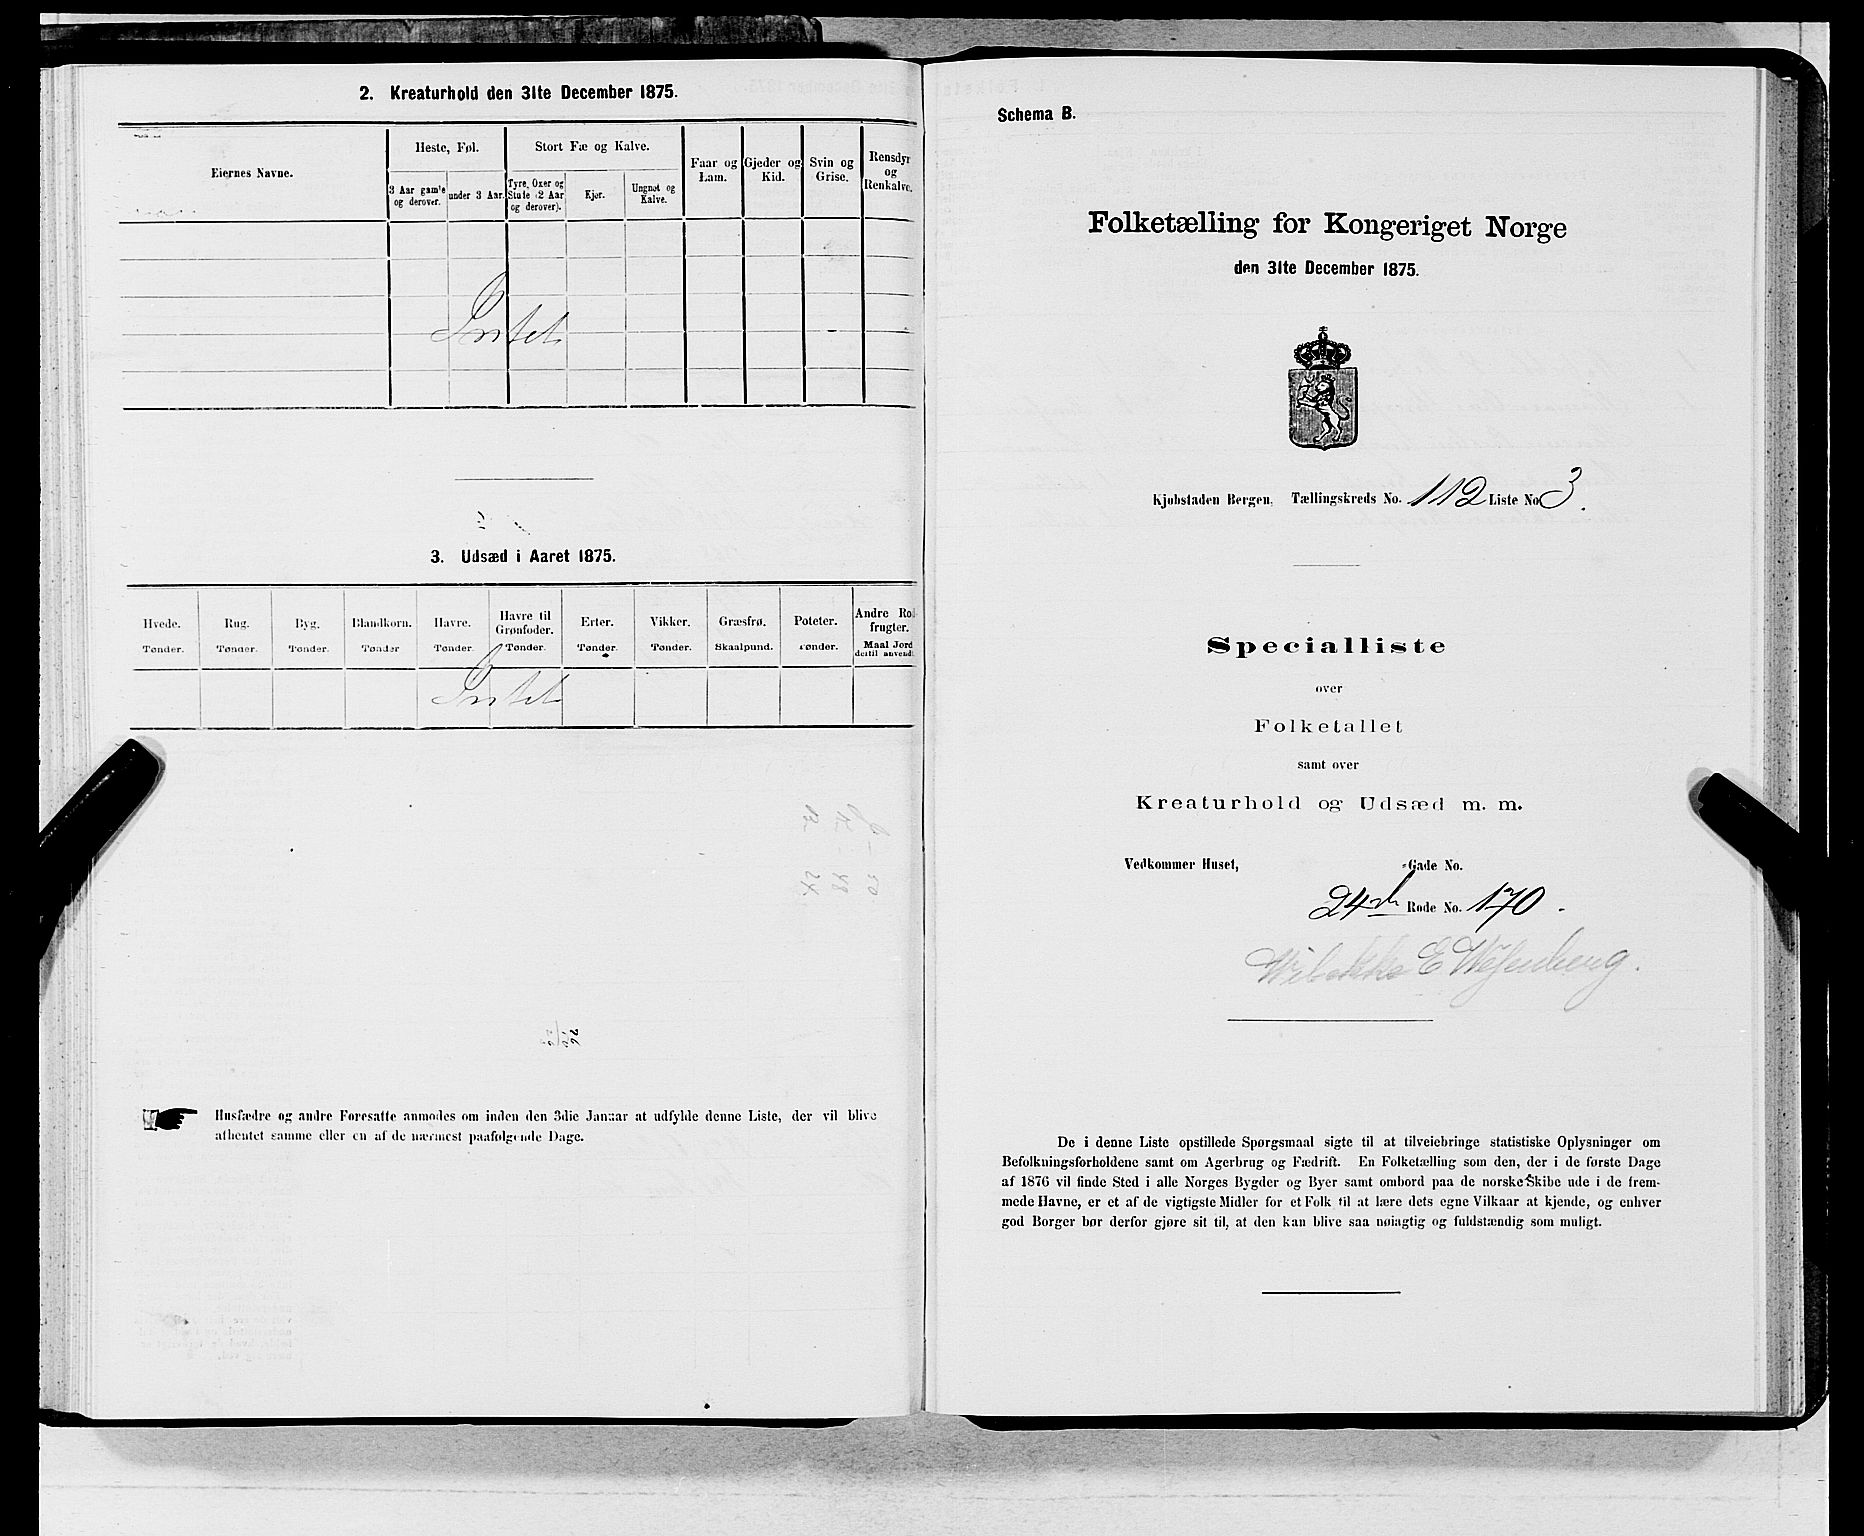 2. Kreaturhold den 31te December 1875.
Eiernes Navne.
Heste, Føl.
3 Aar gamle og derover.
under 3 Aar.
Stort Fæ og Kalve.
Tyre, Oxer og Stude (2 Aar og derover).
Kjør.
Ungnøt og Kalve.
Faar og Lam.
Gjeder og Kid.
Svin og Grise.
Rensdyr og Renkalve.
Intet
3. Udsæd i Aaret 1875.
Hvede. Tønder.
Rug. Tønder.
Byg. Tønder.
Blandkorn. Tønder
Havre. Tønder.
Havre til Grønfoder. Tønder.
Erter. Tønder.
Vikker. Tønder.
Græsfrø. Skaalpund.
Poteter. Tønder.
Andre Rodfrugter. Maal Jord dertil anvendt.
Intet
Husfædre og andre Foresatte anmodes om inden den 3die Januar at udfylde denne Liste, der vil blive
afhentet samme eller en af de nærmest paafølgende Dage.
Schema B.
Folketælling for Kongeriget Norge
den 31te December 1875.
Kjøbstaden Bergen, Tællingskreds No. 112 Liste No 3.
Specialliste
over
Folketallet
samt over
Kreaturhold og Udsæd m. m.
Vedkommer Huset, -Gade No.
24de Rode No. 170.
E
De i denne Liste opstillede Spørgsmaal sigte til at tilveiebringe statistiske Oplysninger om
Befolkningsforholdene samt om Agerbrug og Fædrift. En Folketælling som den, der i de første Dage
af 1876 vil finde Sted i alle Norges Bygder og Byer samt ombord paa de norske Skibe ude i de frem-
mede Havne, er et af de vigtigste Midler for et Folk til at lære dets egne Vilkaar at kjende, og enhver
god Borger bør derfor gjøre sit til, at den kan blive saa nøiagtig og fuldstændig som muligt.